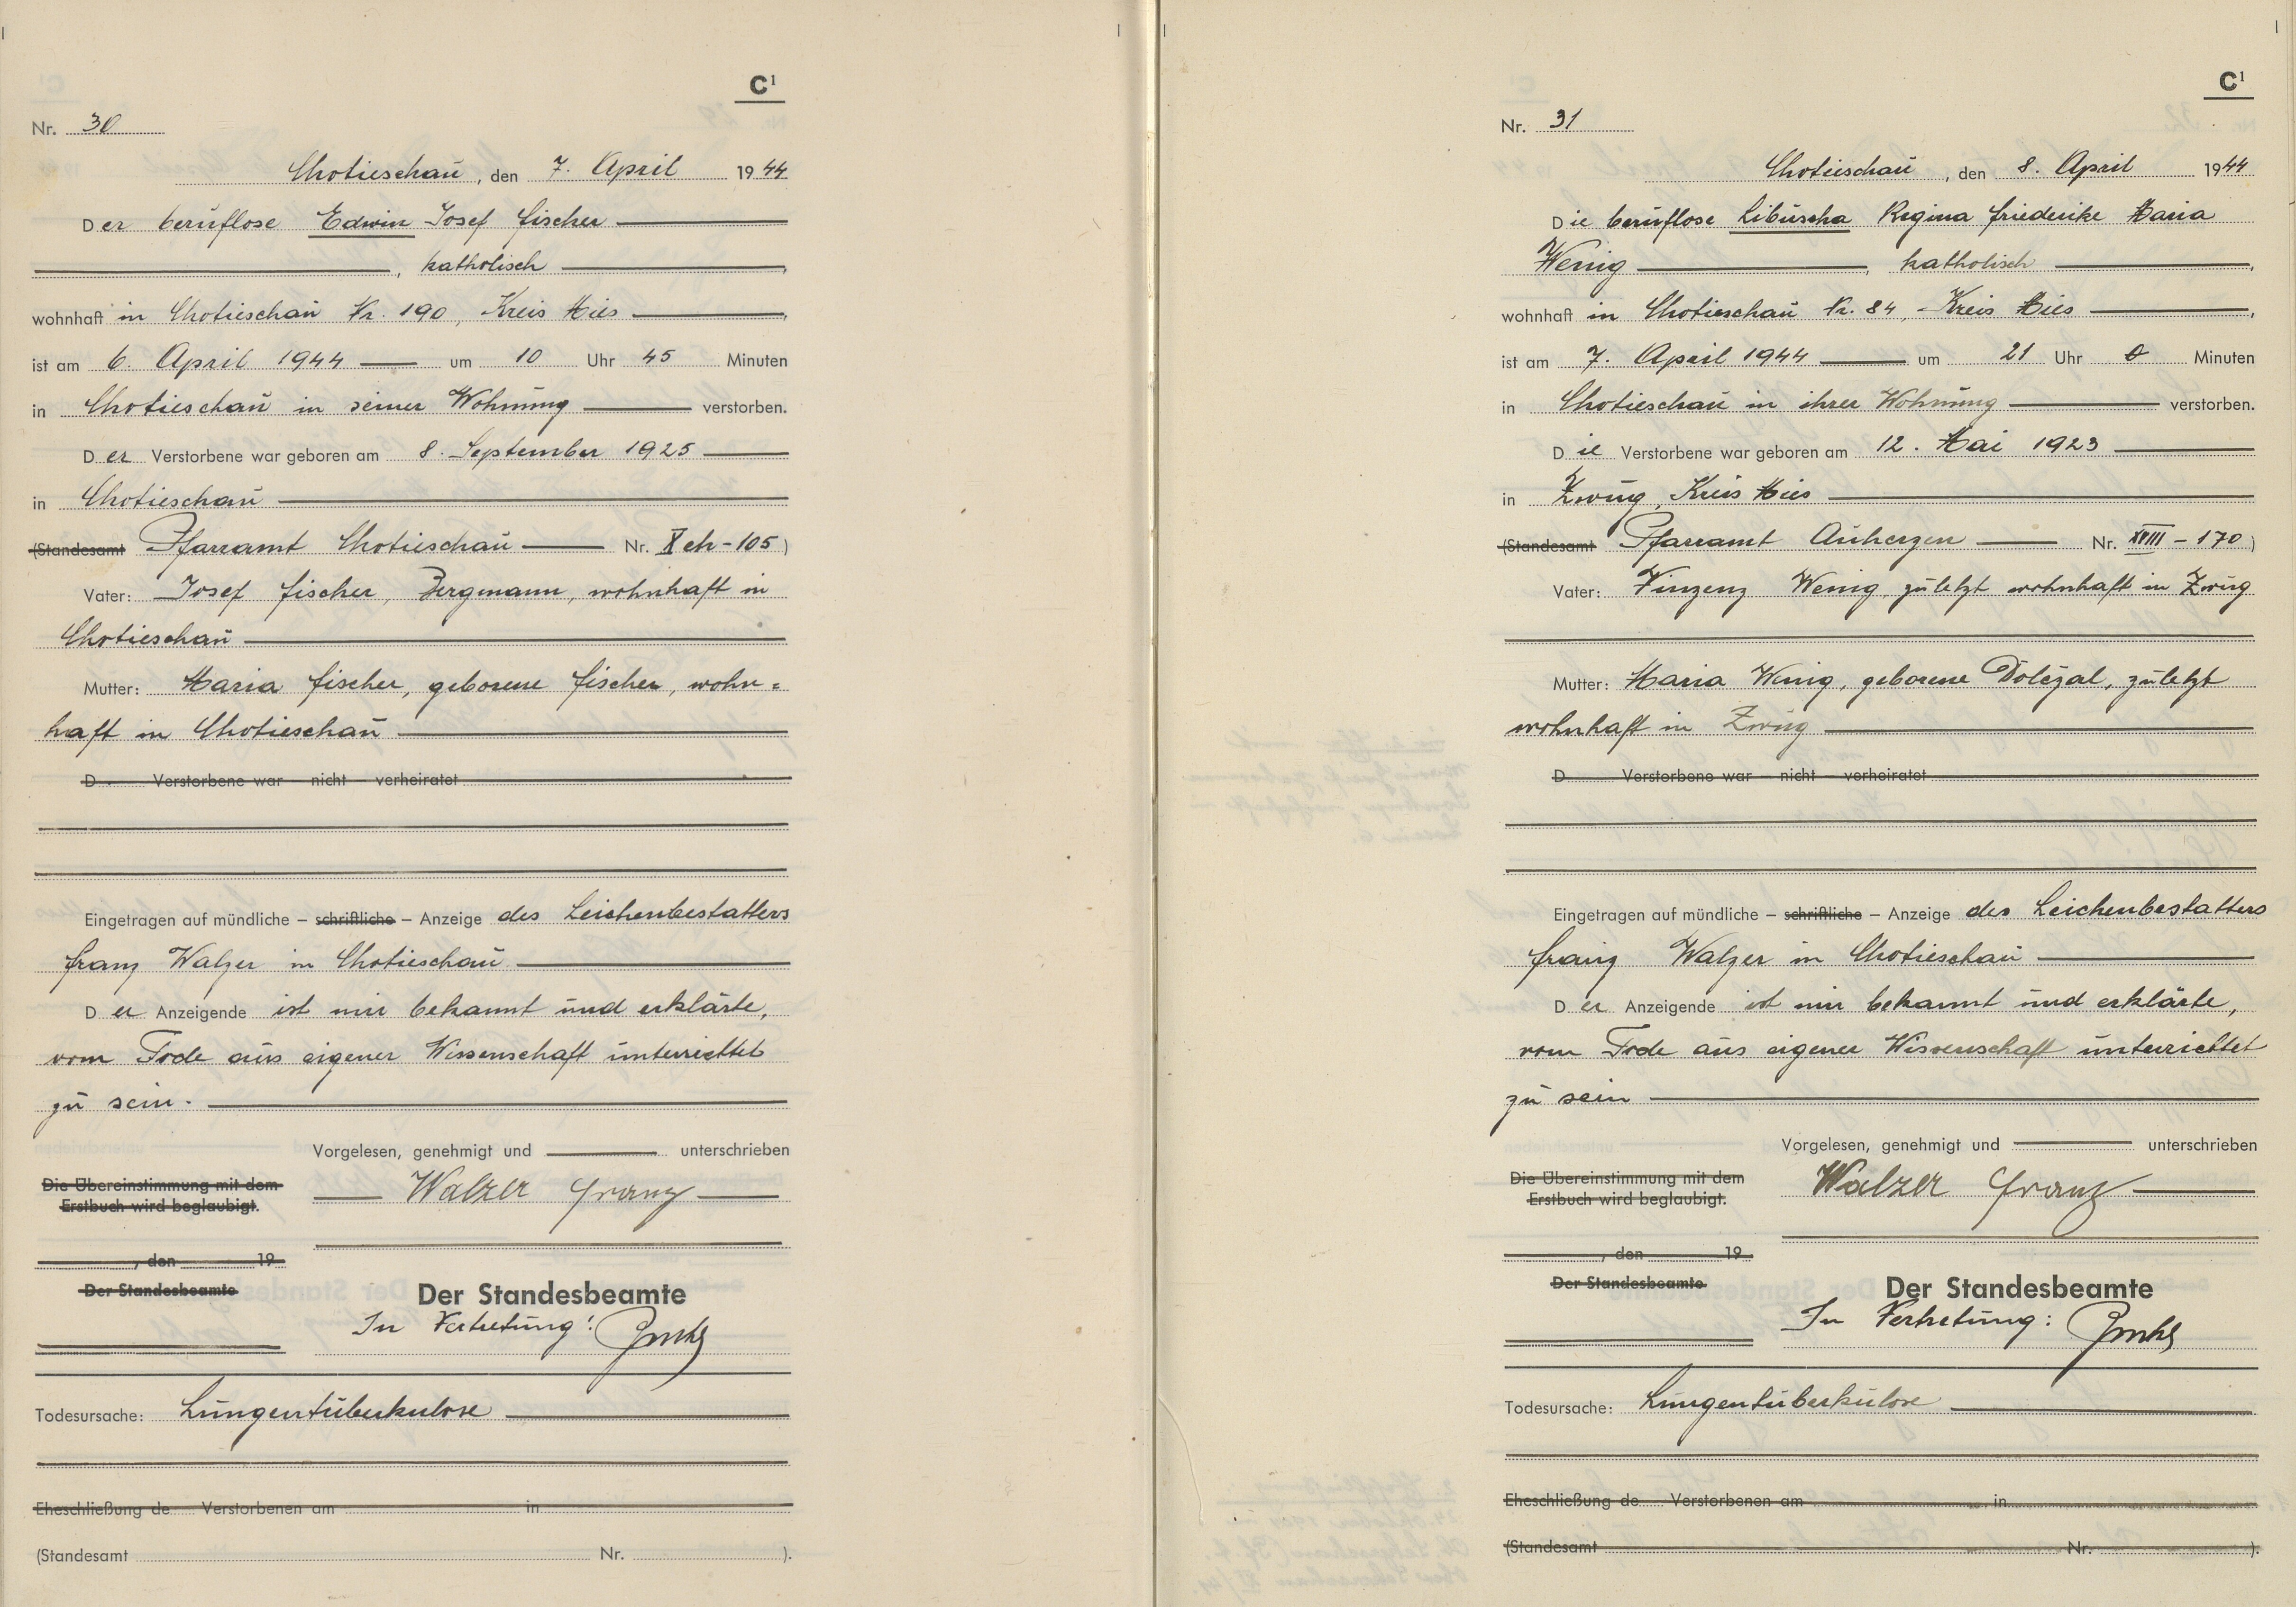 C¹
Nr. 30
Chotieschau, den 7. April 1944
Der berufslose Edwin Josef Fischer
, katholisch ,
wohnhaft in Chotieschau Nr. 190, Kreis Mies ,
ist am 6. April 1944 um 10 Uhr 45 Minuten
in Chotieschau in seiner Wohnung verstorben.
Der Verstorbene war geboren am 8. September 1925
in Chotieschau
(Standesamt Pfarramt Chotieschau Nr. X ch - 105)
Vater: Josef Fischer, Bergmann, wohnhaft in
Chotieschau
Mutter: Maria Fischer, geborene Fischer, wohn=
haft in Chotieschau
D Verstorbene war – nicht – verheiratet
Eingetragen auf mündliche – schriftliche – Anzeige des Leichenbestatters
Franz Walzer in Chotieschau
Der Anzeigende ist mir bekannt und erklärte,
vom Tode aus eigener Wissenschaft unterrichtet
zu sein.
Vorgelesen, genehmigt und unterschrieben
Die Übereinstimmung mit dem
Erstbuch wird beglaubigt.
Walzer Franz
, den 19
Der Standesbeamte
Der Standesbeamte
In Vertretung:
Todesursache: Lungentuberkulose
Eheschließung de Verstorbenen am in
(Standesamt Nr. ).
C¹
Nr. 31
Chotieschau, den 8. April 1944
Die berufslose Libuscha Regina Friederike Maria
Wenig , katholisch ,
wohnhaft in Chotieschau Nr. 84, Kreis Mies ,
ist am 7. April 1944 um 21 Uhr 0 Minuten
in Chotieschau in ihrer Wohnung verstorben.
Die Verstorbene war geboren am 12. Mai 1923
in Zwug, Kreis Mies
(Standesamt Pfarramt Auherzen Nr. XVIII - 170)
Vater: Vinzenz Wenig, zuletzt wohnhaft in Zwug
Mutter: Maria Wenig, geborene Doležal, zuletzt
wohnhaft in Zwug
D Verstorbene war – nicht – verheiratet
Eingetragen auf mündliche – schriftliche – Anzeige des Leichenbestatters
Franz Walzer in Chotieschau
Der Anzeigende ist mir bekannt und erklärte,
vom Tode aus eigener Wissenschaft unterrichtet
zu sein
Vorgelesen, genehmigt und unterschrieben
Die Übereinstimmung mit dem
Erstbuch wird beglaubigt.
Walzer Franz
, den 19
Der Standesbeamte
Der Standesbeamte
In Vertretung:
Todesursache: Lungentuberkulose
Eheschließung de Verstorbenen am in
(Standesamt Nr. ).